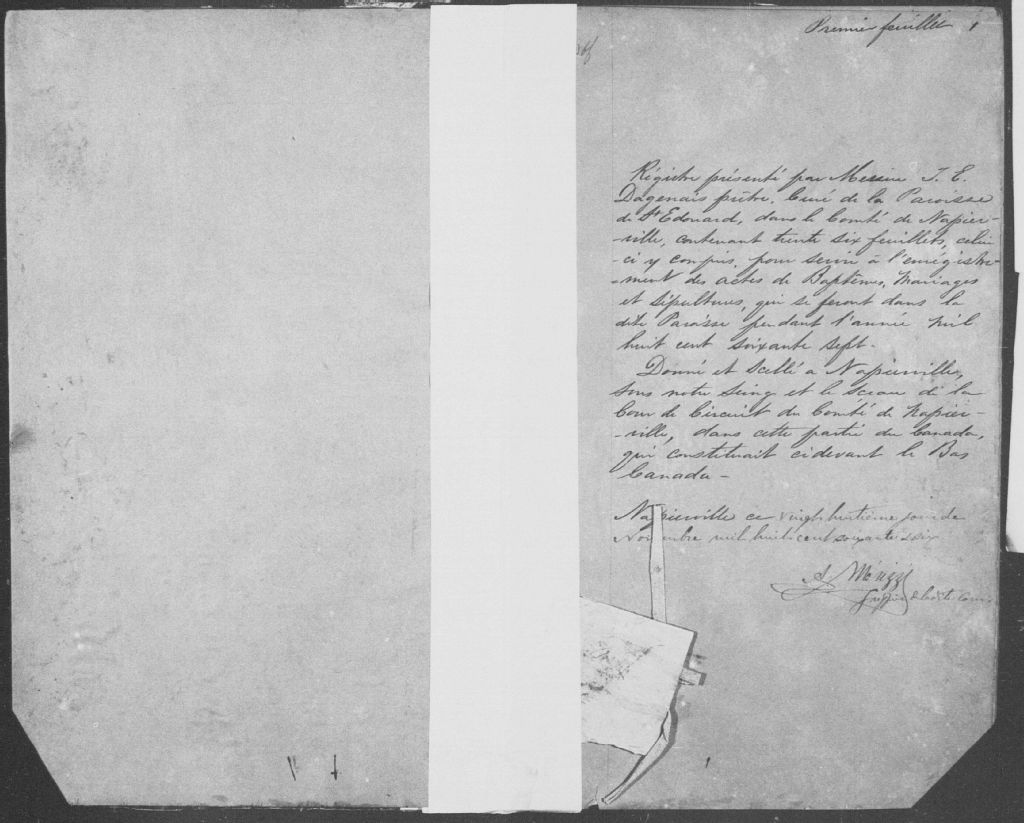 Premier feuillet 1
Régistre présenté par Messire J. E.
Dagenais prêtre, Curé de la Paroisse
de St Edouard, dans le Comté de Napier-
-ville, contenant trente six feuillets, celui
-ci y compris, pour servir à l'enrégistre-
-ment des actes de Baptêmes, Mariages
et Sépultures, qui se feront dans la
dite Paroisse pendant l'année mil
huit cent soixante sept.
Donné et Scellé a Napierville,
sous notre Seing et le Sceau de la
Cour de Circuit du Comté de Napier-
-ville, dans cette partie du Canada,
qui constituait cidevant le Bas
Canada -
Napierville ce vingt huitième jour de
Novembre mil huit cent soixante & six
Greffier de la dite Cour